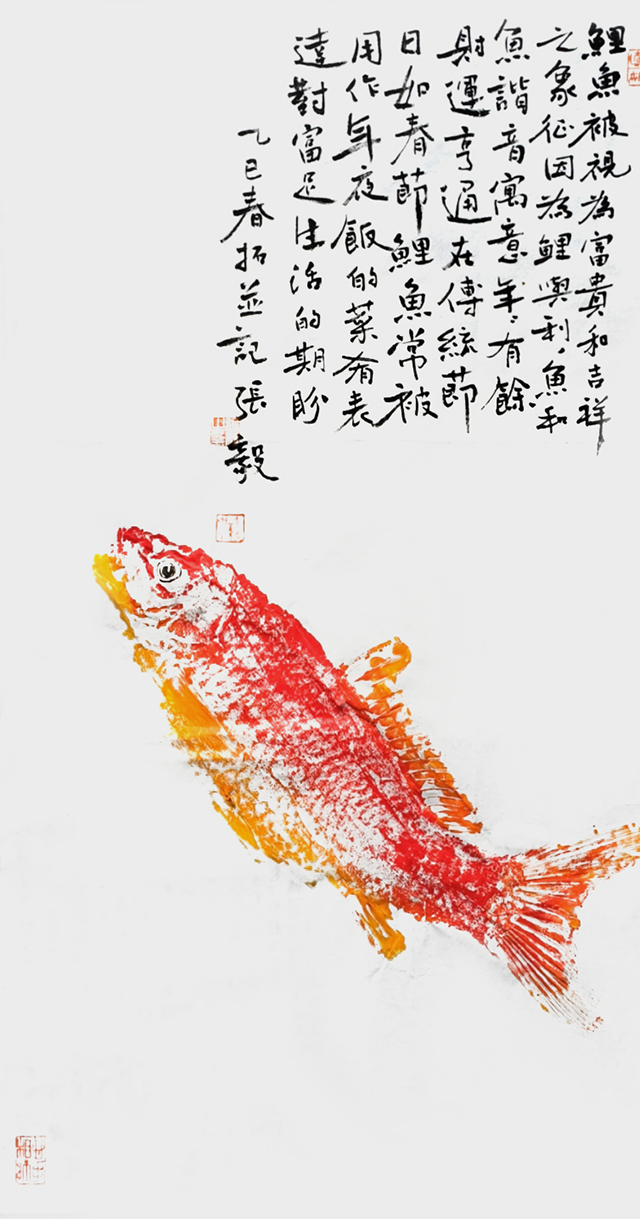 鯉魚被視為富貴和吉祥
之象征因為鯉與利，魚和
魚諧音寓意年年有餘
財運亨通在傳統節
日如春節鯉魚常被
用作年夜飯的菜肴表
達對富足生活的期盼
乙巳春拓並記張毅